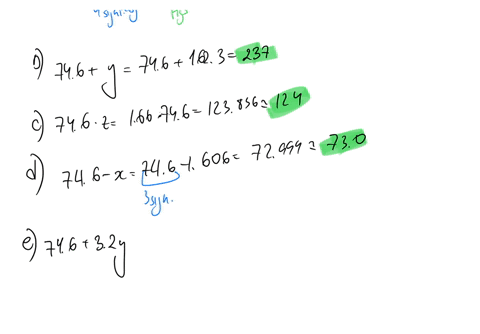 b) 74.6 + y = 74.6 + 162.3 = 237
c) 74.6 · z = 1.66 · 74.6 = 123.836 ≈ 124
d) 74.6 - x = 74.6 - 1.606 = 72.994 ≈ 73.0
3 sign.
e) 74.6 + 3.2y